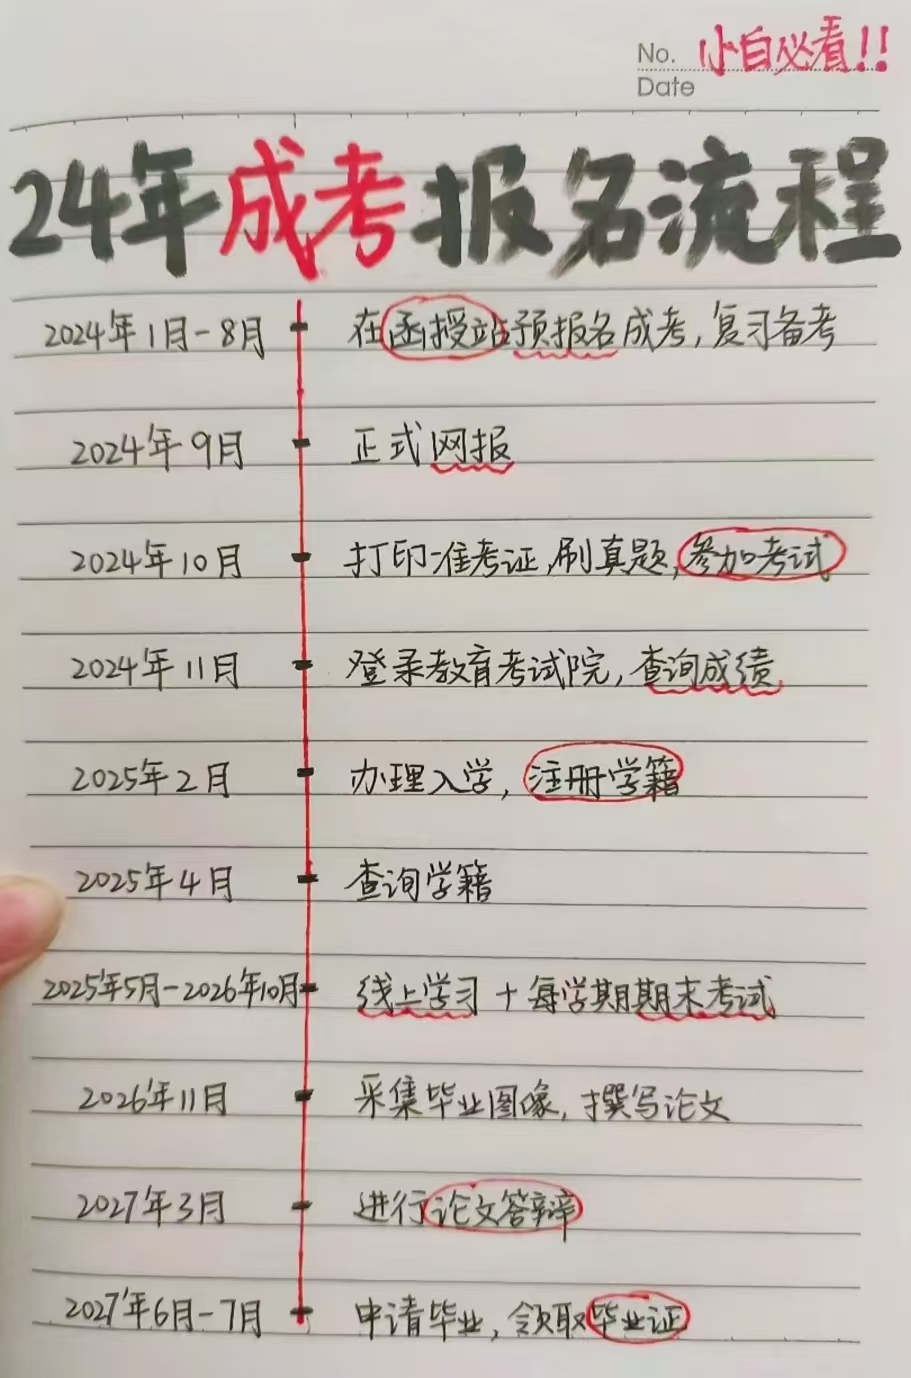 No. 小白必看!!
Date
24年成考报名流程
2024年1月-8月 在函授站预报名成考,复习备考
2024年9月 正式网报
2024年10月 打印准考证,刷真题,参加考试
2024年11月 登录教育考试院,查询成绩
2025年2月 办理入学,注册学籍
2025年4月 查询学籍
2025年5月-2026年10月 线上学习+每学期期末考试
2026年11月 采集毕业图像,撰写论文
2027年3月 进行论文答辩
2027年6月-7月 申请毕业,领取毕业证